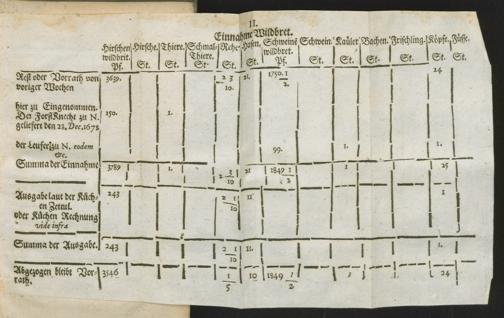 II.
Einnahme Wildbret.
Hirschen wildbret. Pf. Hirsche. St. Thiere. St. Schmal-Thiere. St. Rehe. St. Hasen. St. Schweine wildbret. Pf. Schwein. St. Kaüler. St. Bachen. St. Frischling. St. Köpfe. St. Füsse. St.
Rest oder Vorrath von 3639. 2 3/10. 21. 1750. 1/2 24.
voriger Wochen
hier zu Eingenommen.
Der ForstKnecht zu N. 150. 1.
geliefert den 22. Dec. 1671
der Leufer zu N. eodem 99. 1. 1.
&c.
Summa der Einnahme 3789 1. 2 3/10 21 1849 1/2 1 25
Ausgabe laut der Küch- 243 2 1/10 11 1
en Zettul.
oder Küchen Rechnung
vide infra
Summa der Ausgabe. 243 2 1/10 11. 1.
Abgezogen bleibt Vor- 3546 1/5 10 1849 1/2 24
rath.